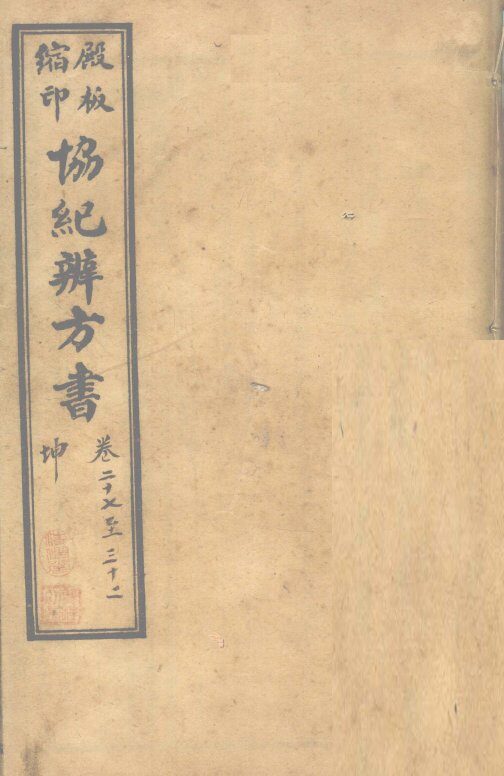 殿板
縮印
協紀辨方書
卷二十七至三十二
坤